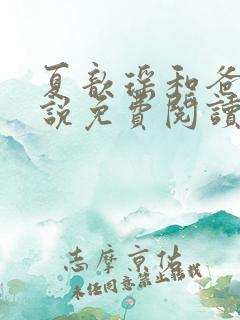 夏歆瑶和爸
說免費閱讀
志摩京佑
未经同意禁止转载